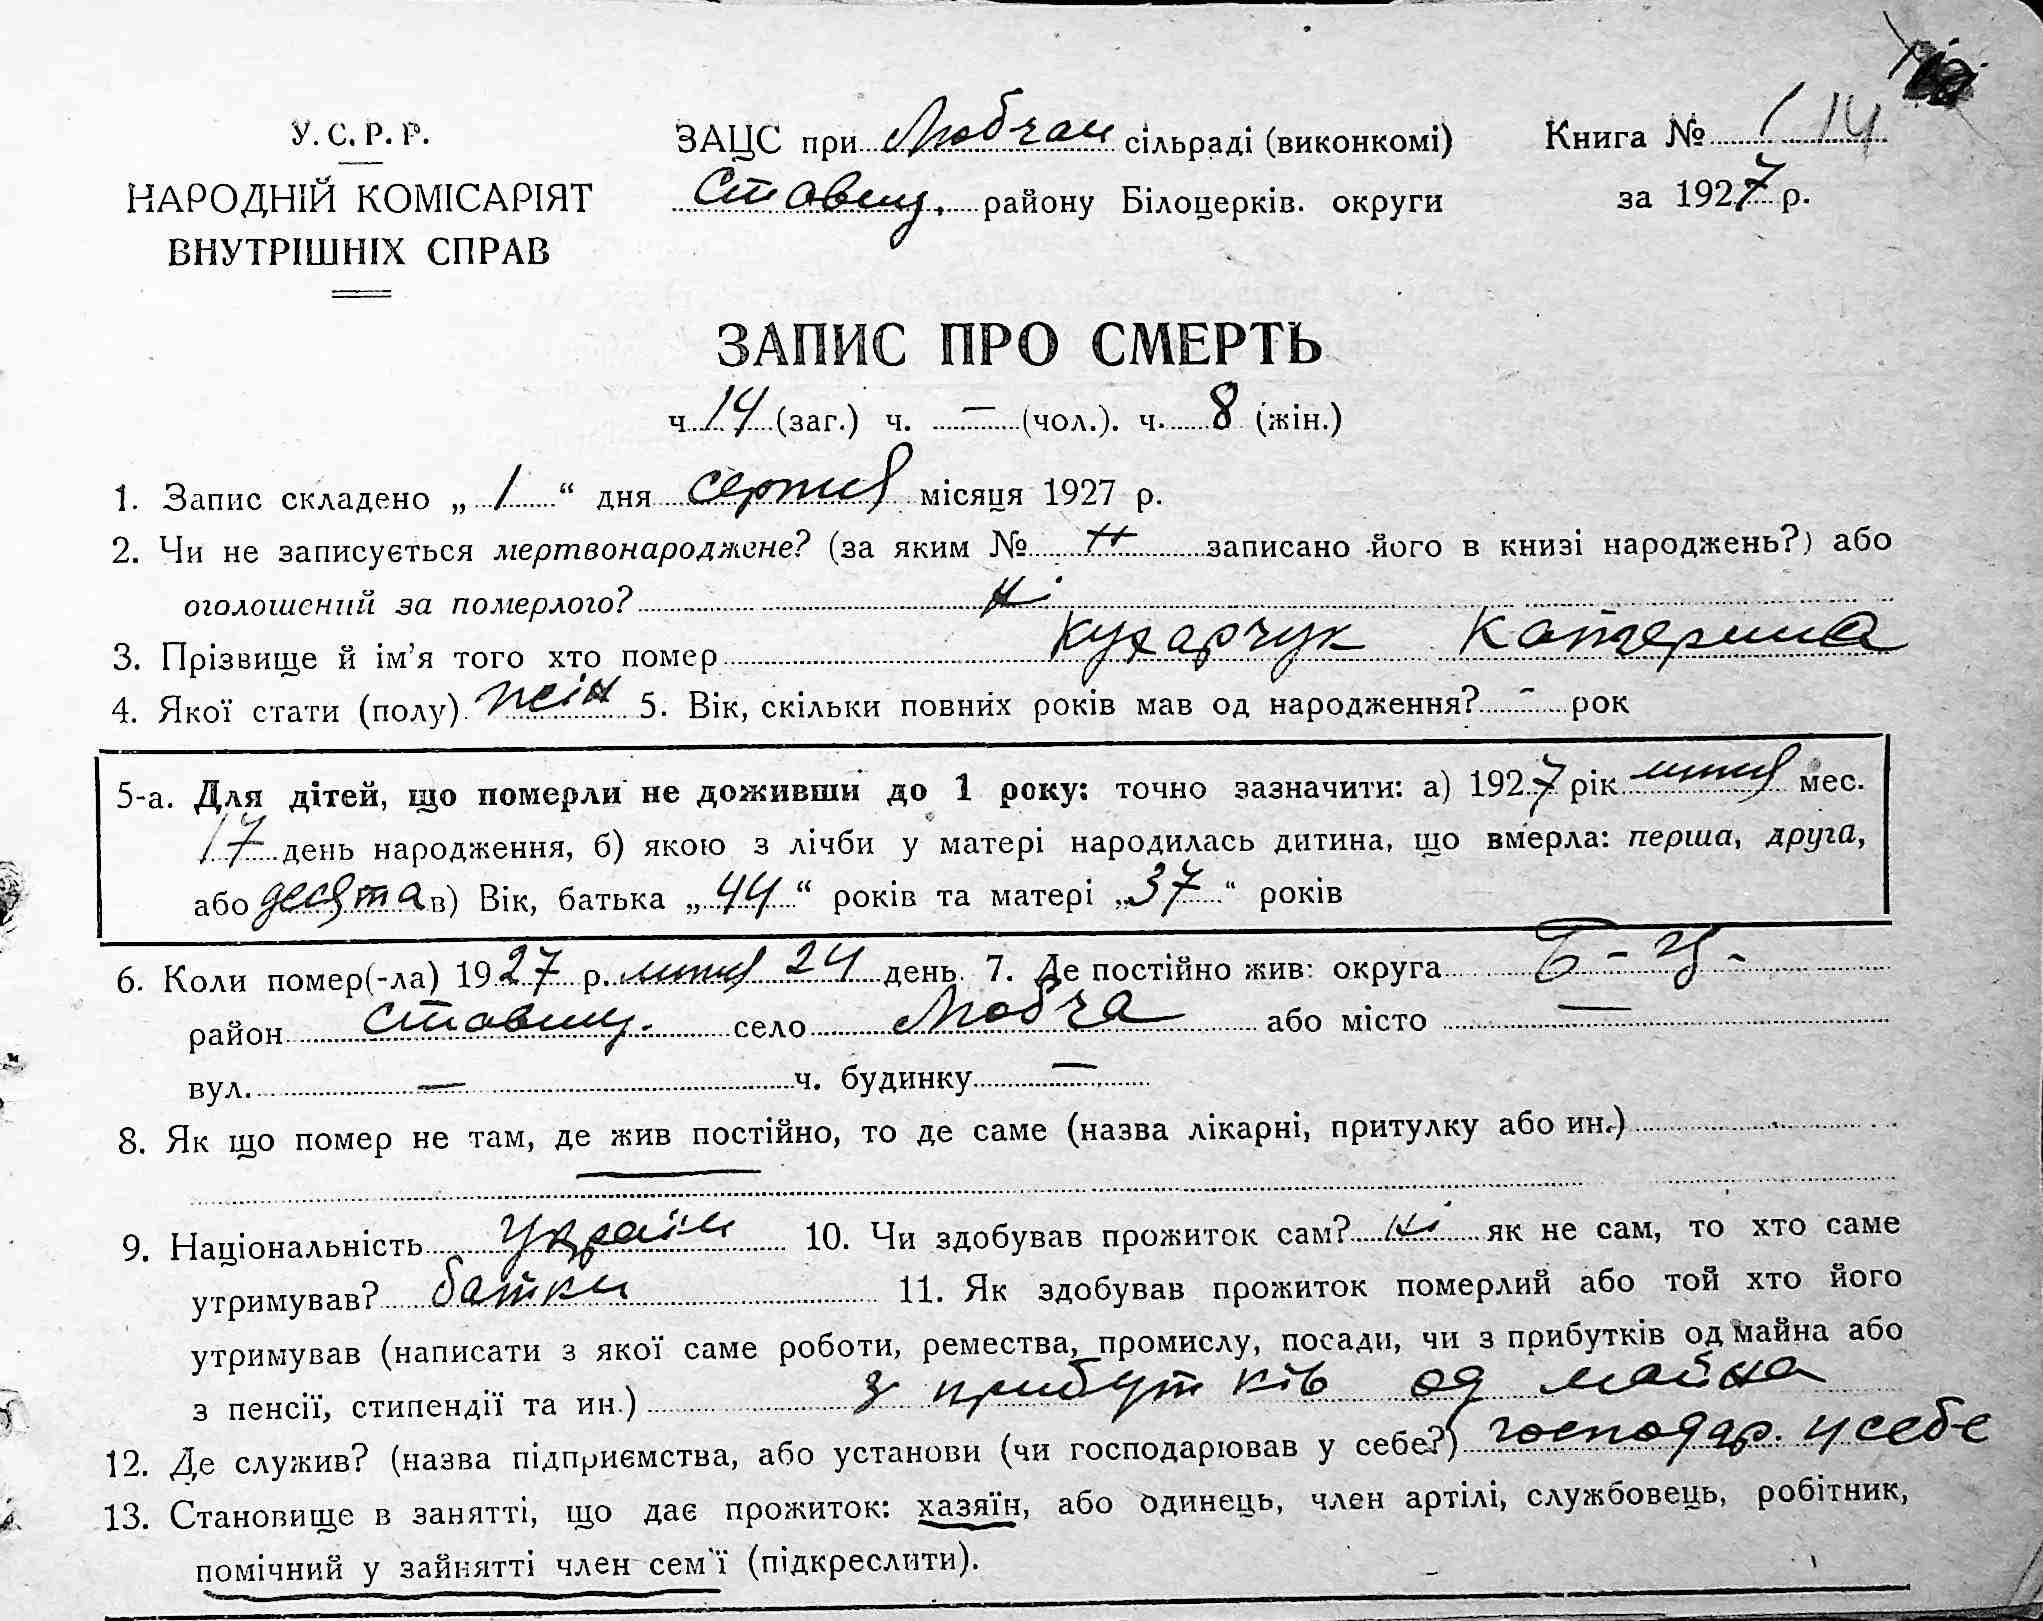 У. С. Р. Р.
НАРОДНІЙ КОМІСАРІЯТ
ВНУТРІШНІХ СПРАВ
ЗАЦС при Любчан сільраді (виконкомі)
Ставищ. району Білоцерків. округи
Книга № 1 14
за 1927 р.
ЗАПИС ПРО СМЕРТЬ
ч. 14 (заг.) ч. — (чол.). ч. 8 (жін.)
1. Запис складено „ 1 “ дня серпня місяця 1927 р.
2. Чи не записується мертвонароджене? (за яким № н записано його в книзі народжень?) або
оголошений за померлого? ні
3. Прізвище й ім’я того хто помер Кухарчук Катерина
4. Якої стати (полу). жін 5. Вік, скільки повних років мав од народження? - рок
5-а. Для дітей, що померли не доживши до 1 року: точно зазначити: а) 1927 рік липня мес.
17 день народження, б) якою з лічби у матері народилась дитина, що вмерла: перша, друга,
або десята в) Вік, батька „ 44 “ років та матері „ 37 “ років
6. Коли помер(-ла) 1927 р. липня 24 день. 7. Де постійно жив: округа Б-Ц-
район Ставищ. село Любча або місто —
вул. — ч. будинку —
8. Як що помер не там, де жив постійно, то де саме (назва лікарні, притулку або ин.)
—
9. Національність Україн 10. Чи здобував прожиток сам? ні як не сам, то хто саме
утримував? батьки 11. Як здобував прожиток померлий або той хто його
утримував (написати з якої саме роботи, ремества, промислу, посади, чи з прибутків од майна або
з пенсії, стипендії та ин.) з прибутків од майна
12. Де служив? (назва підприємства, або установи (чи господарював у себе?) господар. у себе
13. Становище в занятті, що дає прожиток: хазяїн, або одинець, член артілі, службовець, робітник,
помічний у зайнятті член сем’ї (підкреслити).